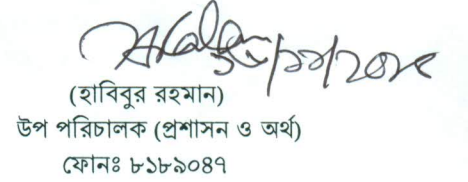 (হাবিবুর রহমান)
উপ পরিচালক (প্রশাসন ও অর্থ)
ফোনঃ ৮১৮৯০৪৭